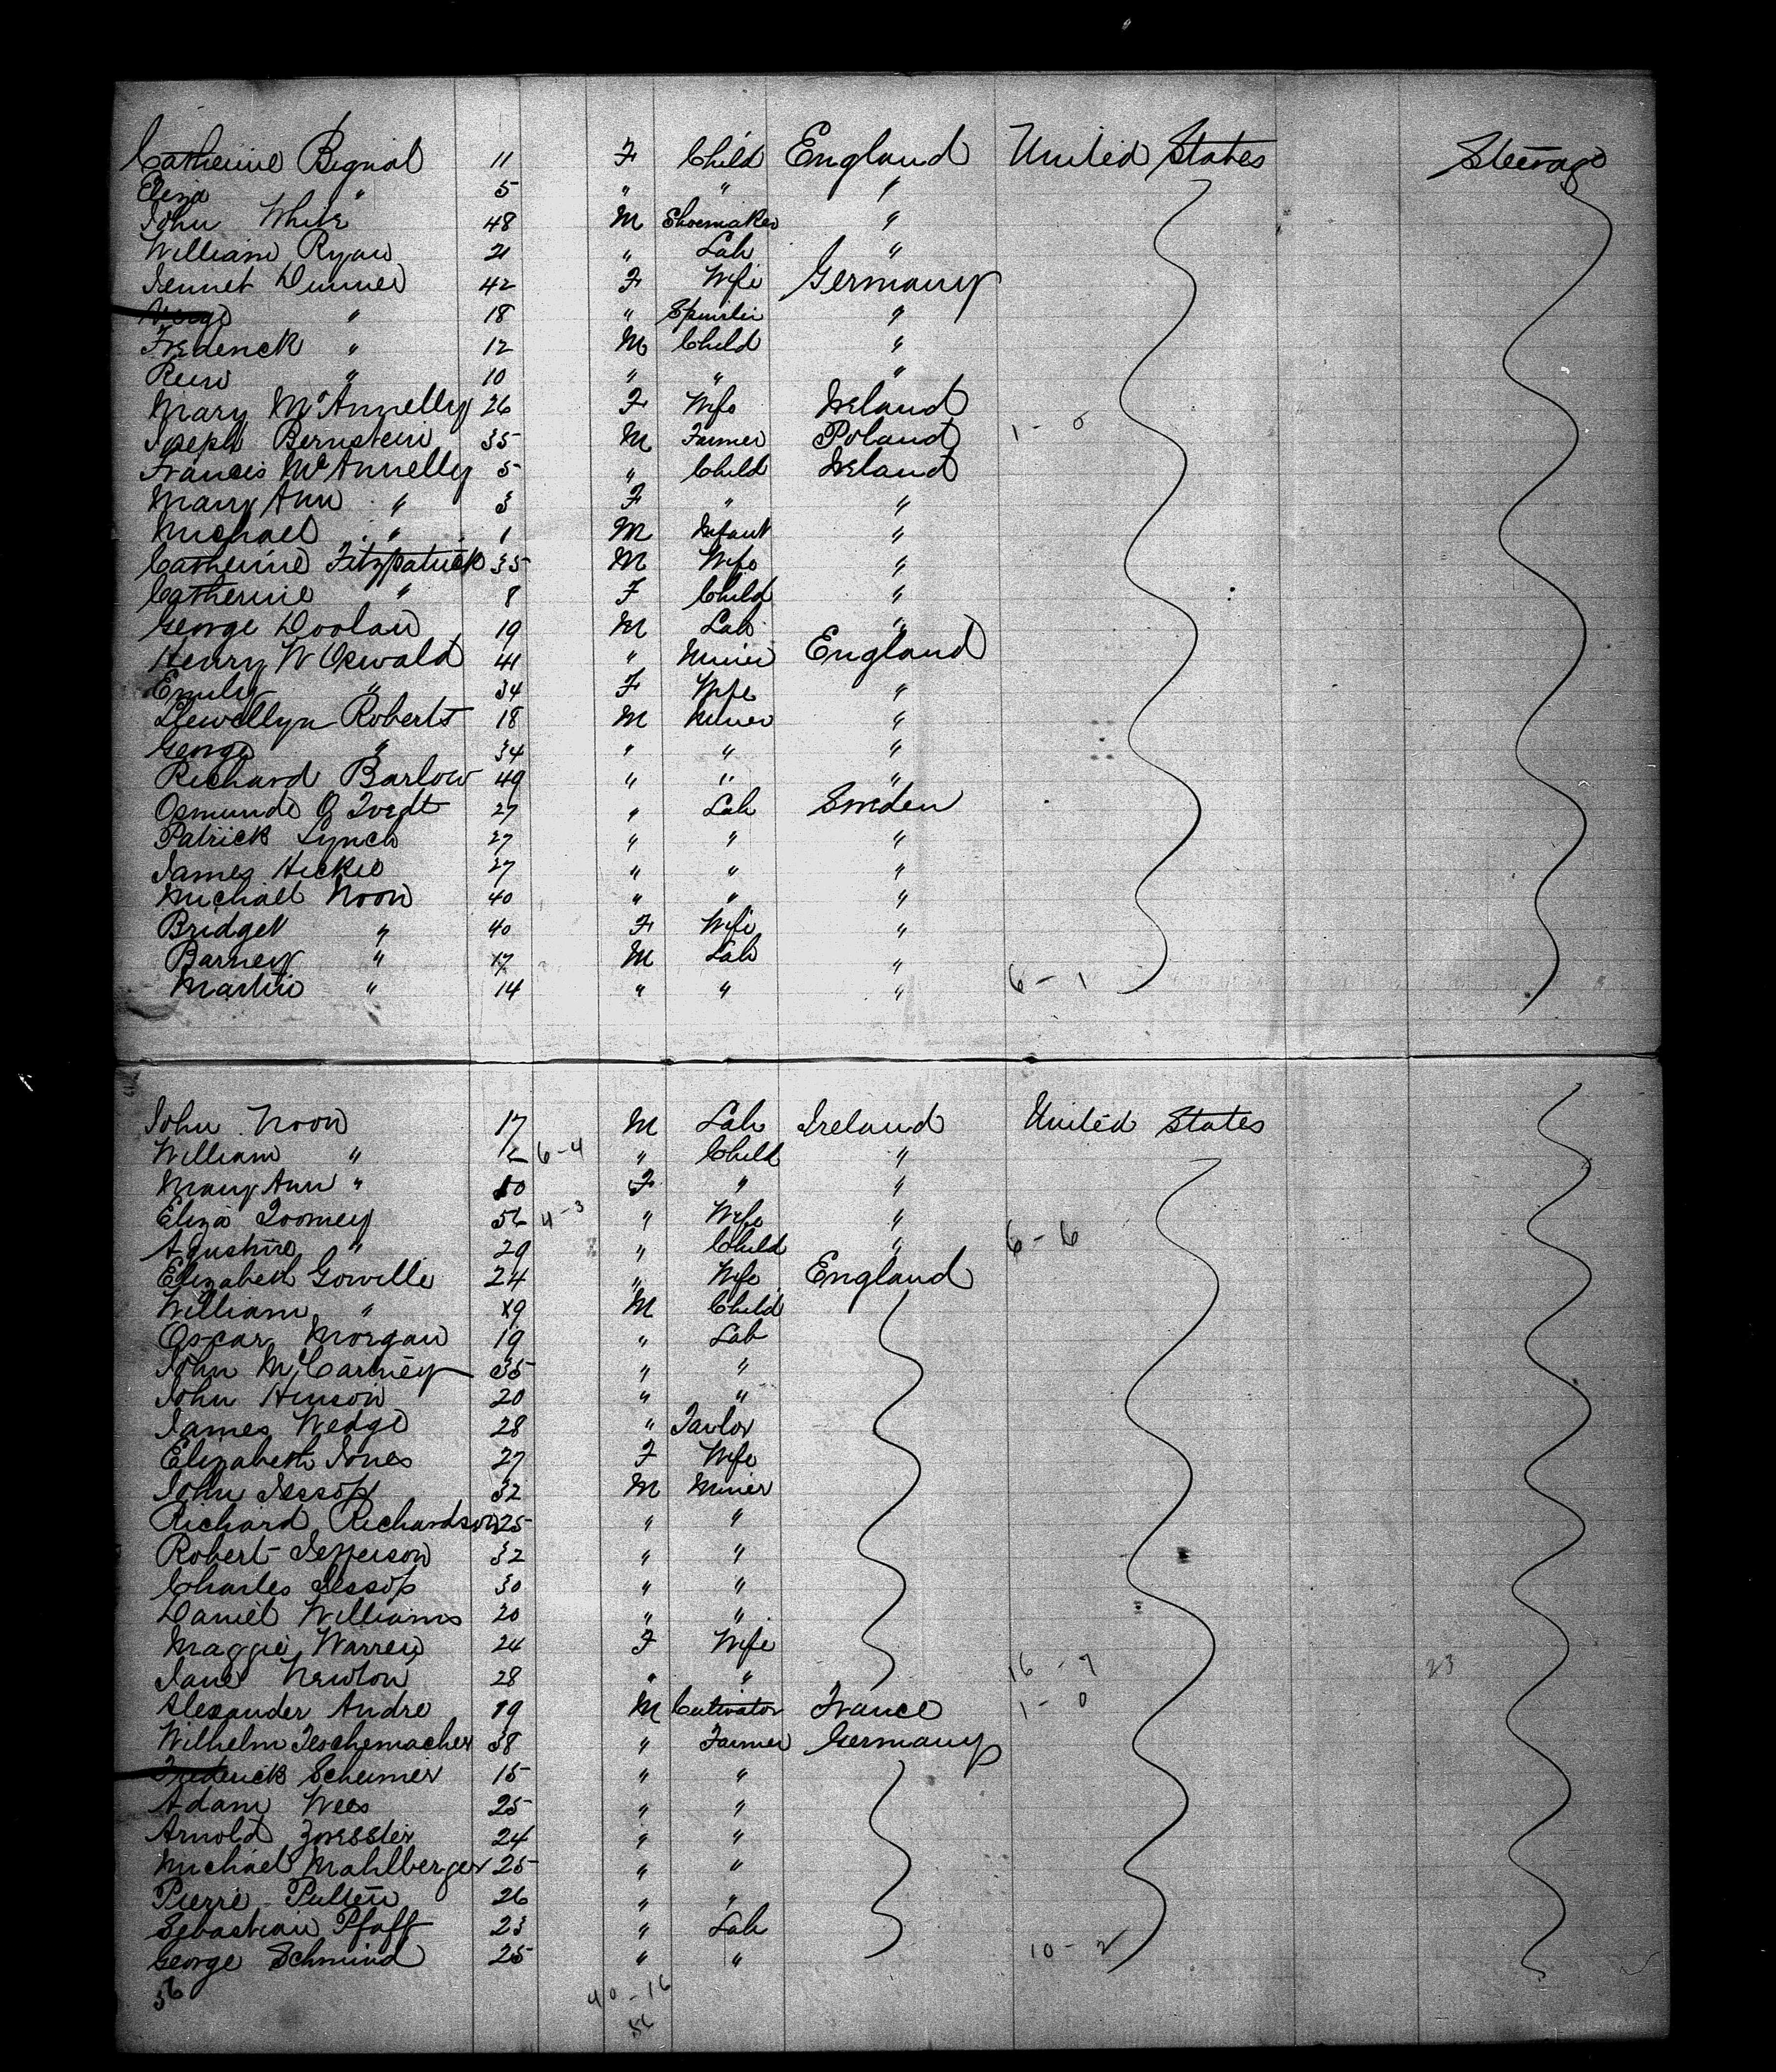 Catherine Bignal 11 F Child England United States Steerage
Eliza " 5 " " "
John White 48 M Shoemaker "
William Ryan 21 " Lab "
Jennet Dunner 42 F Wife Germany
" 18 " Spinster "
Frederick " 12 M Child "
" 10 " " "
Mary McAnnelly 26 F Wife Ireland
Joseph Bernstein 35 M Farmer Poland 1 - 0
Francis McAnnelly 5 " Child Ireland
Mary Ann " 3 F " "
Michael " 1 M Infant "
Catherine Fitzpatrick 35 M Wife "
Catherine " 8 F Child "
George Doolan 19 M Lab "
Henry W Oswald 41 " Miner England
Emily " 34 F Wife "
Llewellyn Roberts 18 M Miner "
George " 34 " " "
Richard Barlow 49 " " "
Osmund O Tvedt 27 " Lab Sweden
Patrick Lynch 27 " " "
James Hickie 27 " " "
Michael Noon 40 " " "
Bridget " 40 F Wife "
Barney " 17 M Lab "
Martin " 14 " " " 6 - 1
John Noon 17 M Lab Ireland United States
William " 12 6-4 " Child "
Mary Ann " 10 F " "
Eliza Toomey 56 4-3 " Wife "
Agustine " 29 " Child " 6 - 6
Elizabeth Gorville 24 " Wife England
William " 19 M Child
Oscar Morgan 19 " Lab
John McCartney 35 " "
John Hinson 20 " "
James Wedge 28 " Tailor
Elizabeth Jones 27 F Wife
John Jessop 32 M Miner
Richard Richardson 25 " "
Robert Jefferson 32 " "
Charles Jessop 30 " "
Daniel Williams 20 " "
Maggie Warren 24 F Wife
Jane Newton 28 " " 16 - 7 23
Alexander Andre 19 M Cultivator France 1 - 0
Wilhelm Teschemacher 38 " Farmer Germany
Frederick Scheimer 15 " "
Adam Wees 25 " "
Arnold Zoressler 24 " "
Michael Mahlberger 25 " "
Pierre Pulten 26 " "
Sebastian Pfaff 23 " Lab
George Schmind 25 " " 10 - 2
56 40 - 16
56